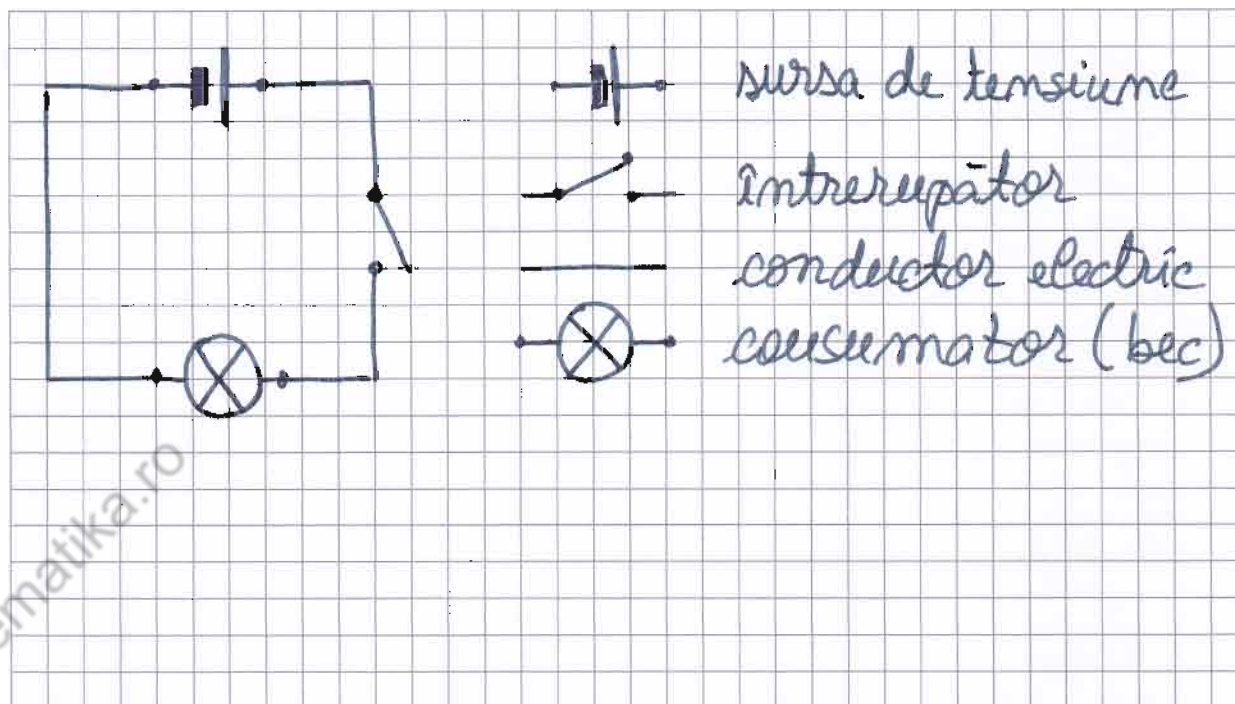 sursa de tensiune
întrerupător
conductor electric
consumator (bec)
ematika.ro